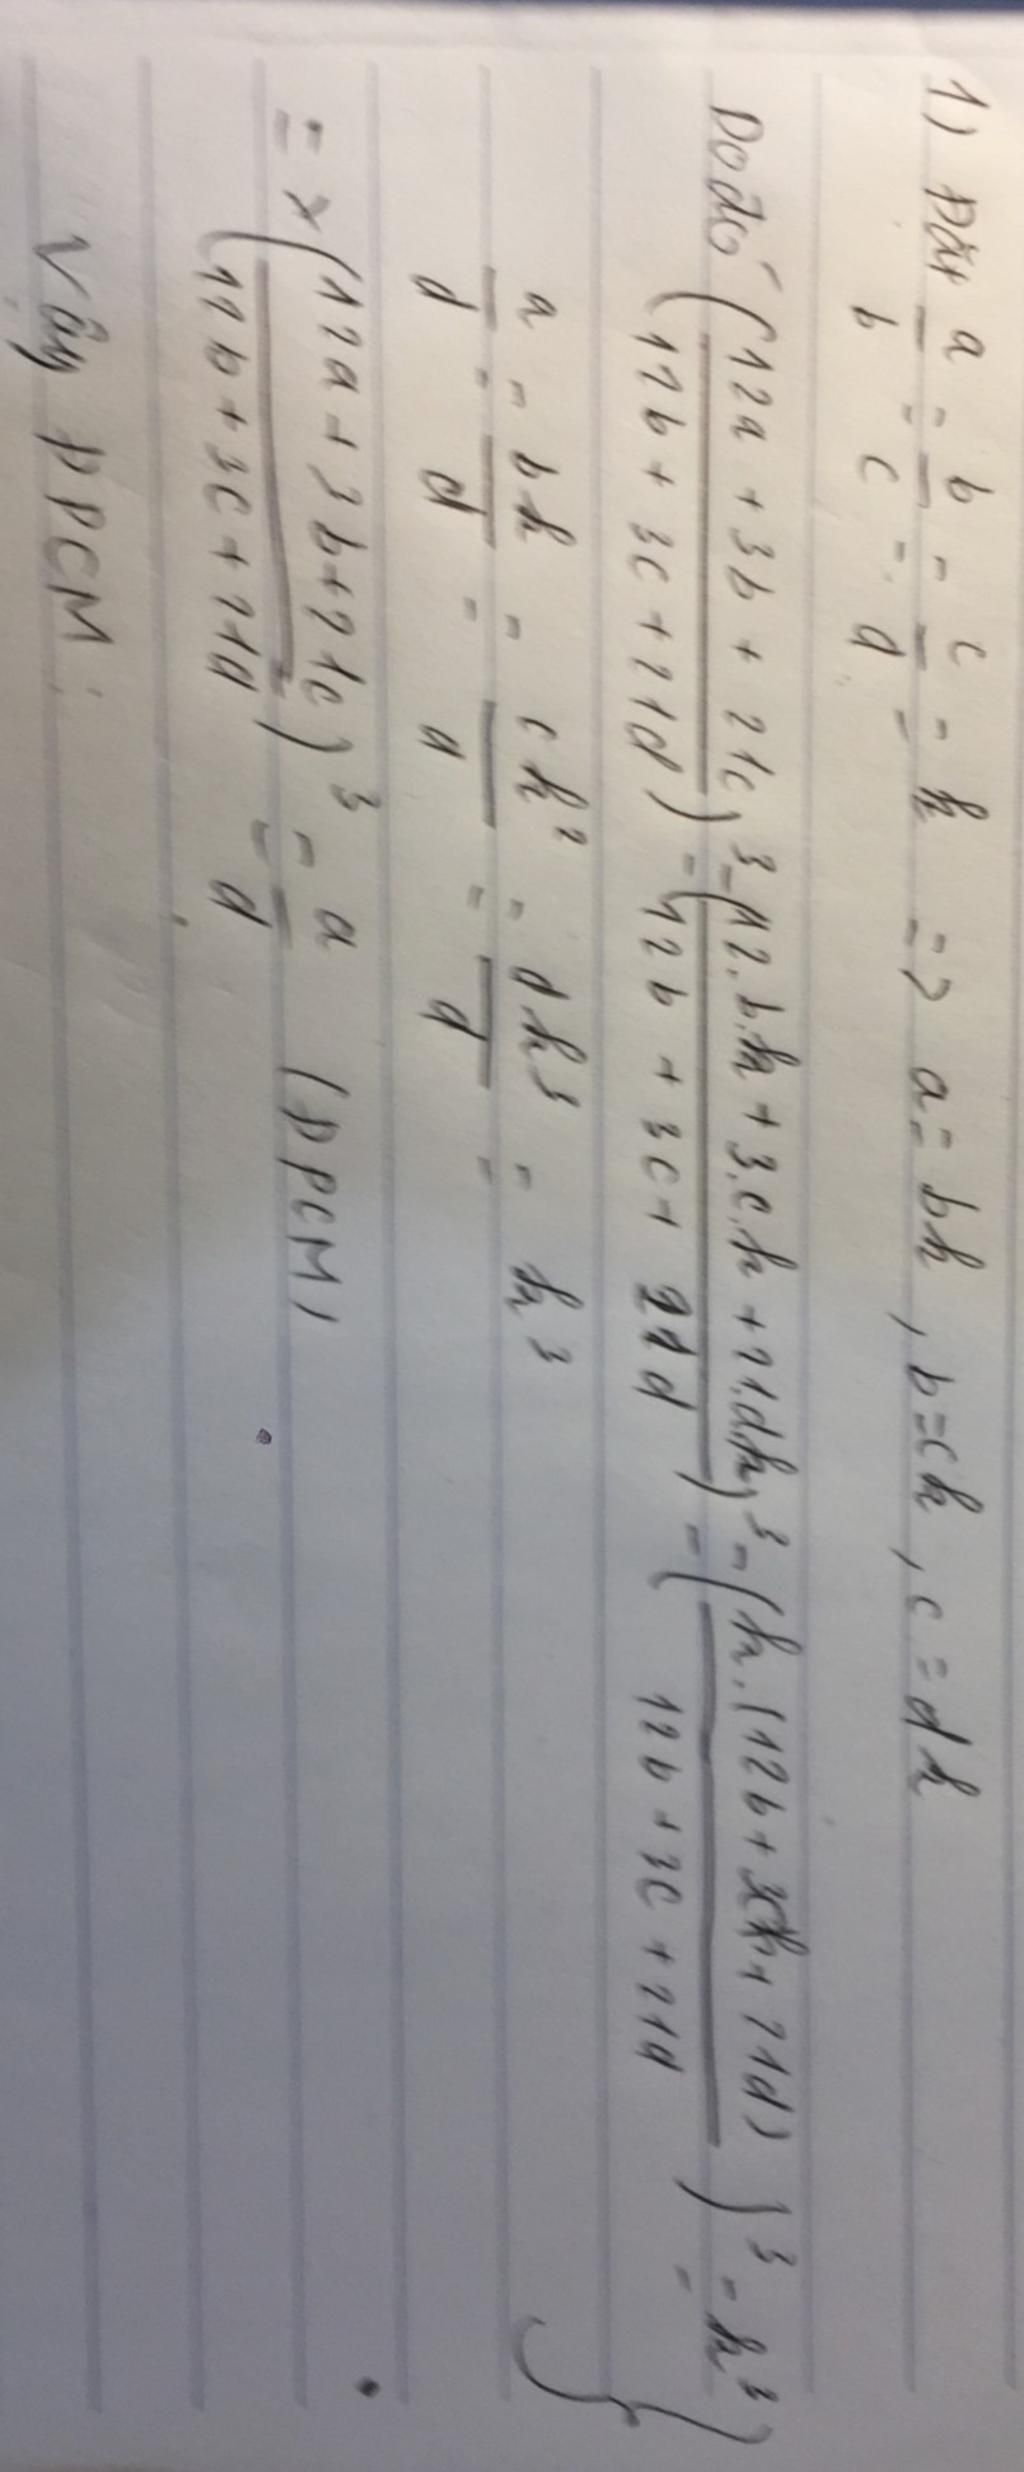 1) Đặt a/b = b/c = c/d = k => a = bk , b = ck , c = dk
Do đó (12a + 3b + 21c / 12b + 3c + 21d)³ = (12.b.k + 3.c.k + 21.d.k / 12b + 3c + 21d)³ = (k.(12b + 3c + 21d) / 12b + 3c + 21d)³ = k³
a/d = bk/d = ck²/d = dk³/d = k³
=> (12a + 3b + 21c / 12b + 3c + 21d)³ = a/d (ĐPCM)
Vậy ĐPCM.